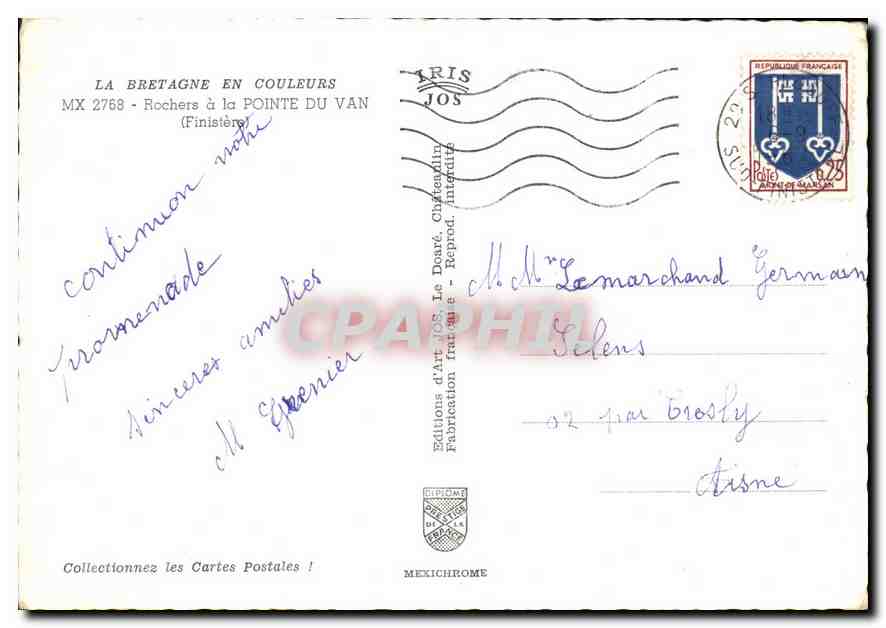 LA BRETAGNE EN COULEURS
MX 2768 - Rochers à la POINTE DU VAN
(Finistère)
continuion notre
promenade
sinceres amitiés
M Grenier
Collectionnez les Cartes Postales !
IRIS
JOS
Editions d'Art JOS, Le Doaré, Châteaulin
Fabrication française - Reprod. interdite
DIPLOME
PRESTIGE
DE LA
FRANCE
MEXICHROME
REPUBLIQUE FRANÇAISE
POSTES 0,25
MONT-DE-MARSAN
M. Mme Lemarchand Germain
Selens
02 par Trosly
Aisne
CPAPHIL